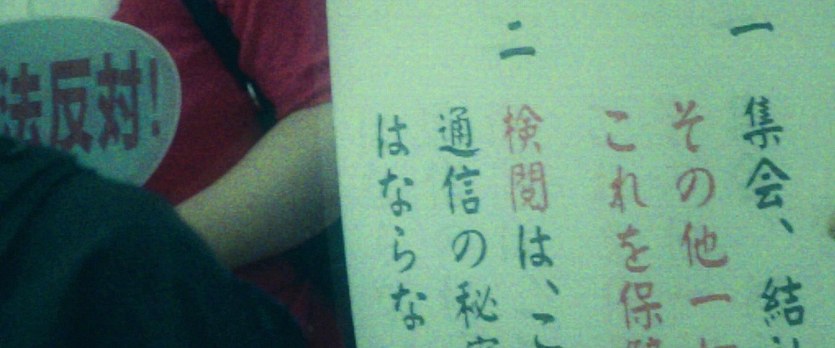 一 集会、結社
その他一切
これを保障
二 検閲は、こ
通信の秘密
はならな
法反対!